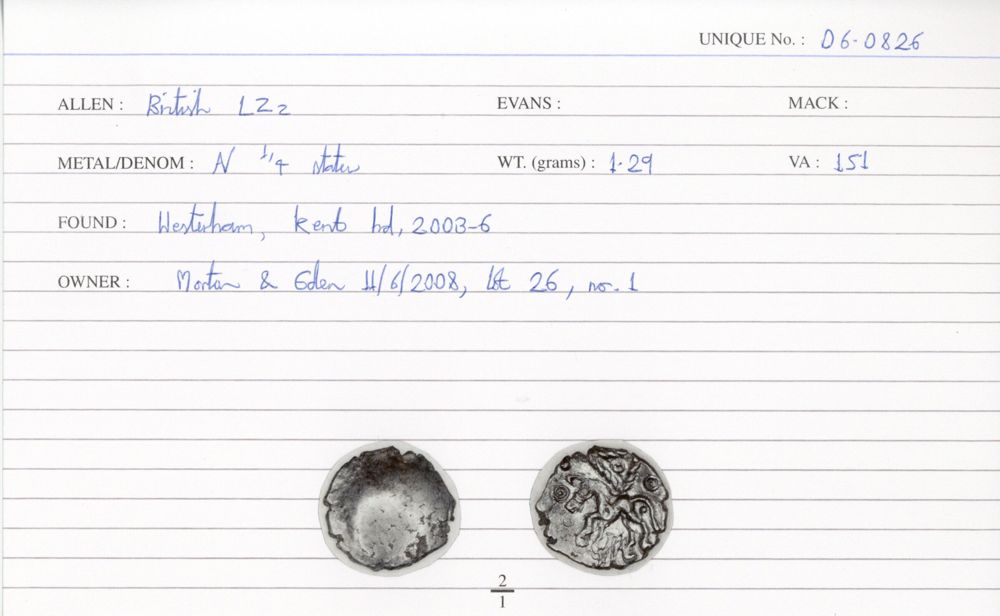 UNIQUE No. : 06-0826
ALLEN : British LZ2 EVANS : MACK :
METAL/DENOM : N 1/4 stater WT. (grams) : 1.29 VA : 151
FOUND : Westerham, Kent hd, 2003-6
OWNER : Morton & Eden 11/6/2008, lot 26, no. 1
2
1